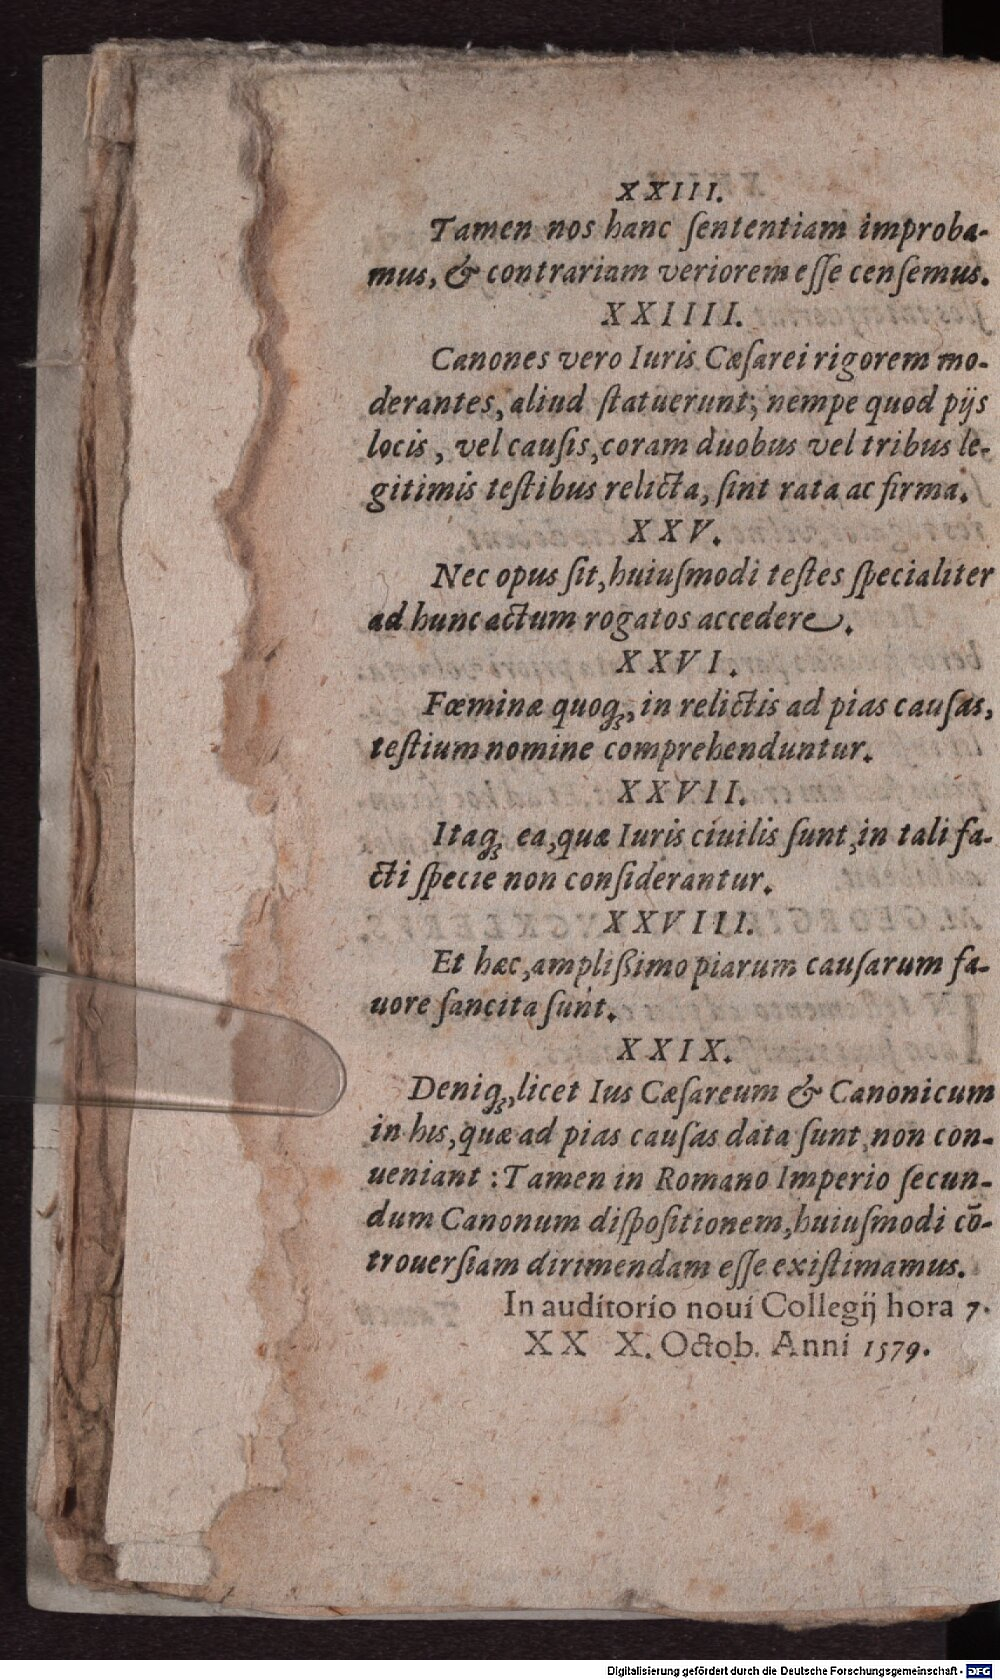 XXIII.
Tamen nos hanc ſententiam improba-
mus, & contrariam veriorem eſſe cenſemus.
XXIIII.
Canones vero Iuris Cæſarei rigorem mo-
derantes, aliud ſtatuerunt; nempe quod pijs
locis, vel cauſis, coram duobus vel tribus le-
gitimis teſtibus relicta, ſint rata ac firma.
XXV.
Nec opus ſit, huiuſmodi teſtes ſpecialiter
ad hunc actum rogatos accedere.
XXVI.
Fœminæ quoqꝫ, in relictis ad pias cauſas,
teſtium nomine comprehenduntur.
XXVII.
Itaqꝫ ea, quæ Iuris ciuilis ſunt, in tali fa-
cti ſpecie non conſiderantur.
XXVIII.
Et hæc, amplißimo piarum cauſarum fa-
uore ſancita ſunt.
XXIX.
Deniqꝫ, licet Ius Cæſareum & Canonicum
in his, quæ ad pias cauſas data ſunt, non con-
ueniant: Tamen in Romano Imperio ſecun-
dum Canonum diſpoſitionem, huiuſmodi cō-
trouerſiam dirimendam eſſe exiſtimamus.
In auditorio noui Collegij hora 7.
XX X. Octob. Anni 1579.
Digitalisierung gefördert durch die Deutsche Forschungsgemeinschaft - DFG